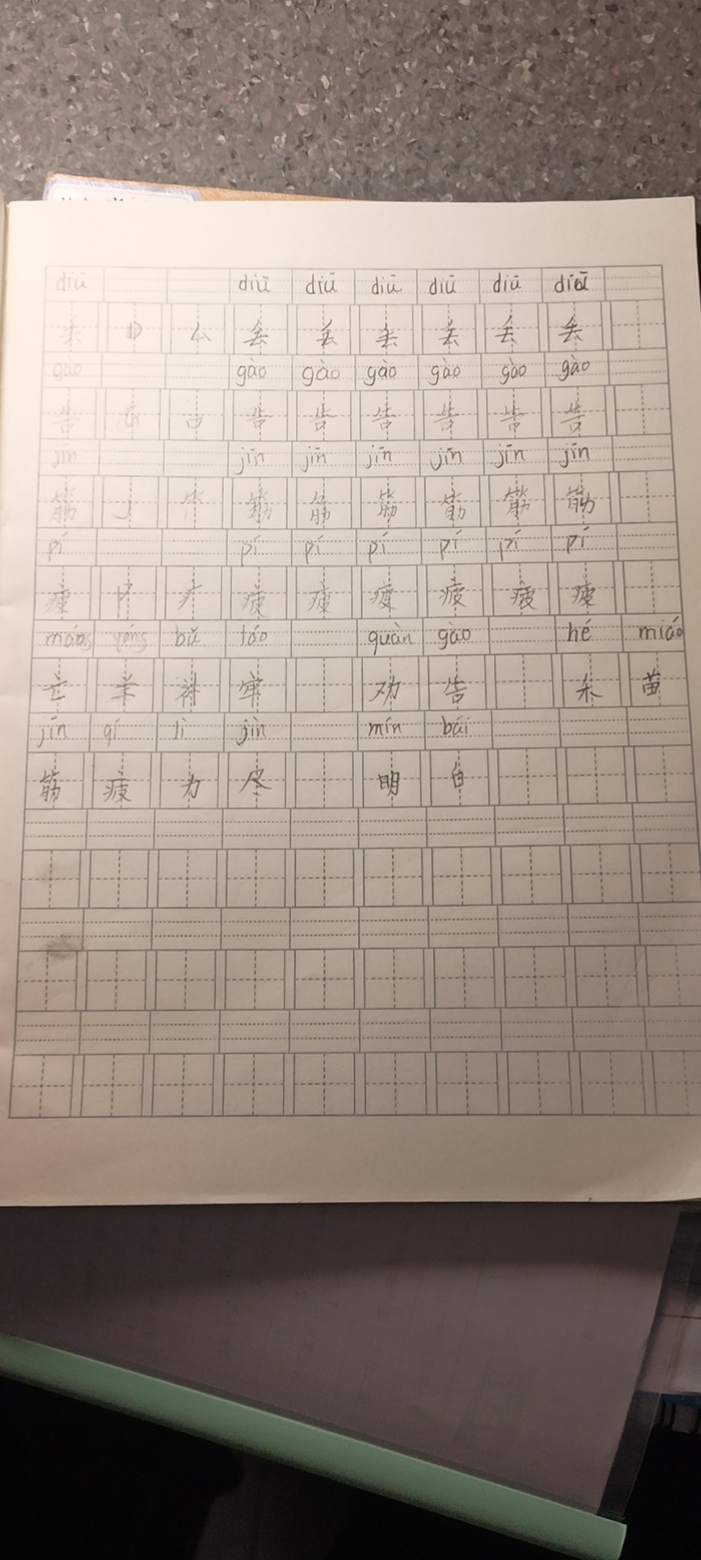 diū diū diū diū diū diū diū
丢 厶 丢 丢 丢 丢 丢 丢
gào gào gào gào gào gào gào
告 告 告 告 告 告 告
jīn jīn jīn jīn jīn jīn jīn
筋 筋 筋 筋 筋 筋 筋
pí pí pí pí pí pí pí
疲 疲 疲 疲 疲 疲 疲
yáng bǔ láo quàn gào hé miáo
亡 羊 补 牢 劝 告 禾 苗
jīn qí lì jìn mín bái
筋 疲 力 尽 明 白